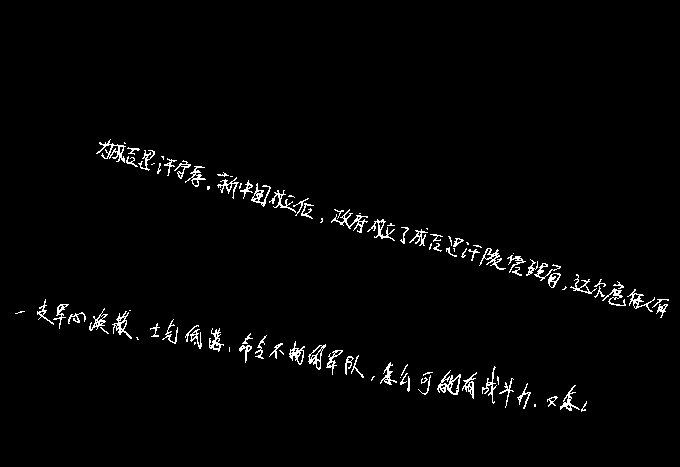 为成吉思汗守孝。新中国成立后，政府成立了成吉思汗陵管理局，达尔扈特人有
一支军心涣散、士气低落、命令不畅的军队，怎么可能有战斗力，又怎么